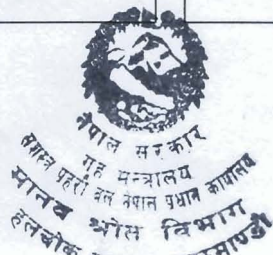 नेपाल सरकार
गृह मन्त्रालय
सशस्त्र प्रहरी बल नेपाल प्रधान कार्यालय
मानव श्रोत विभाग
हलचोक